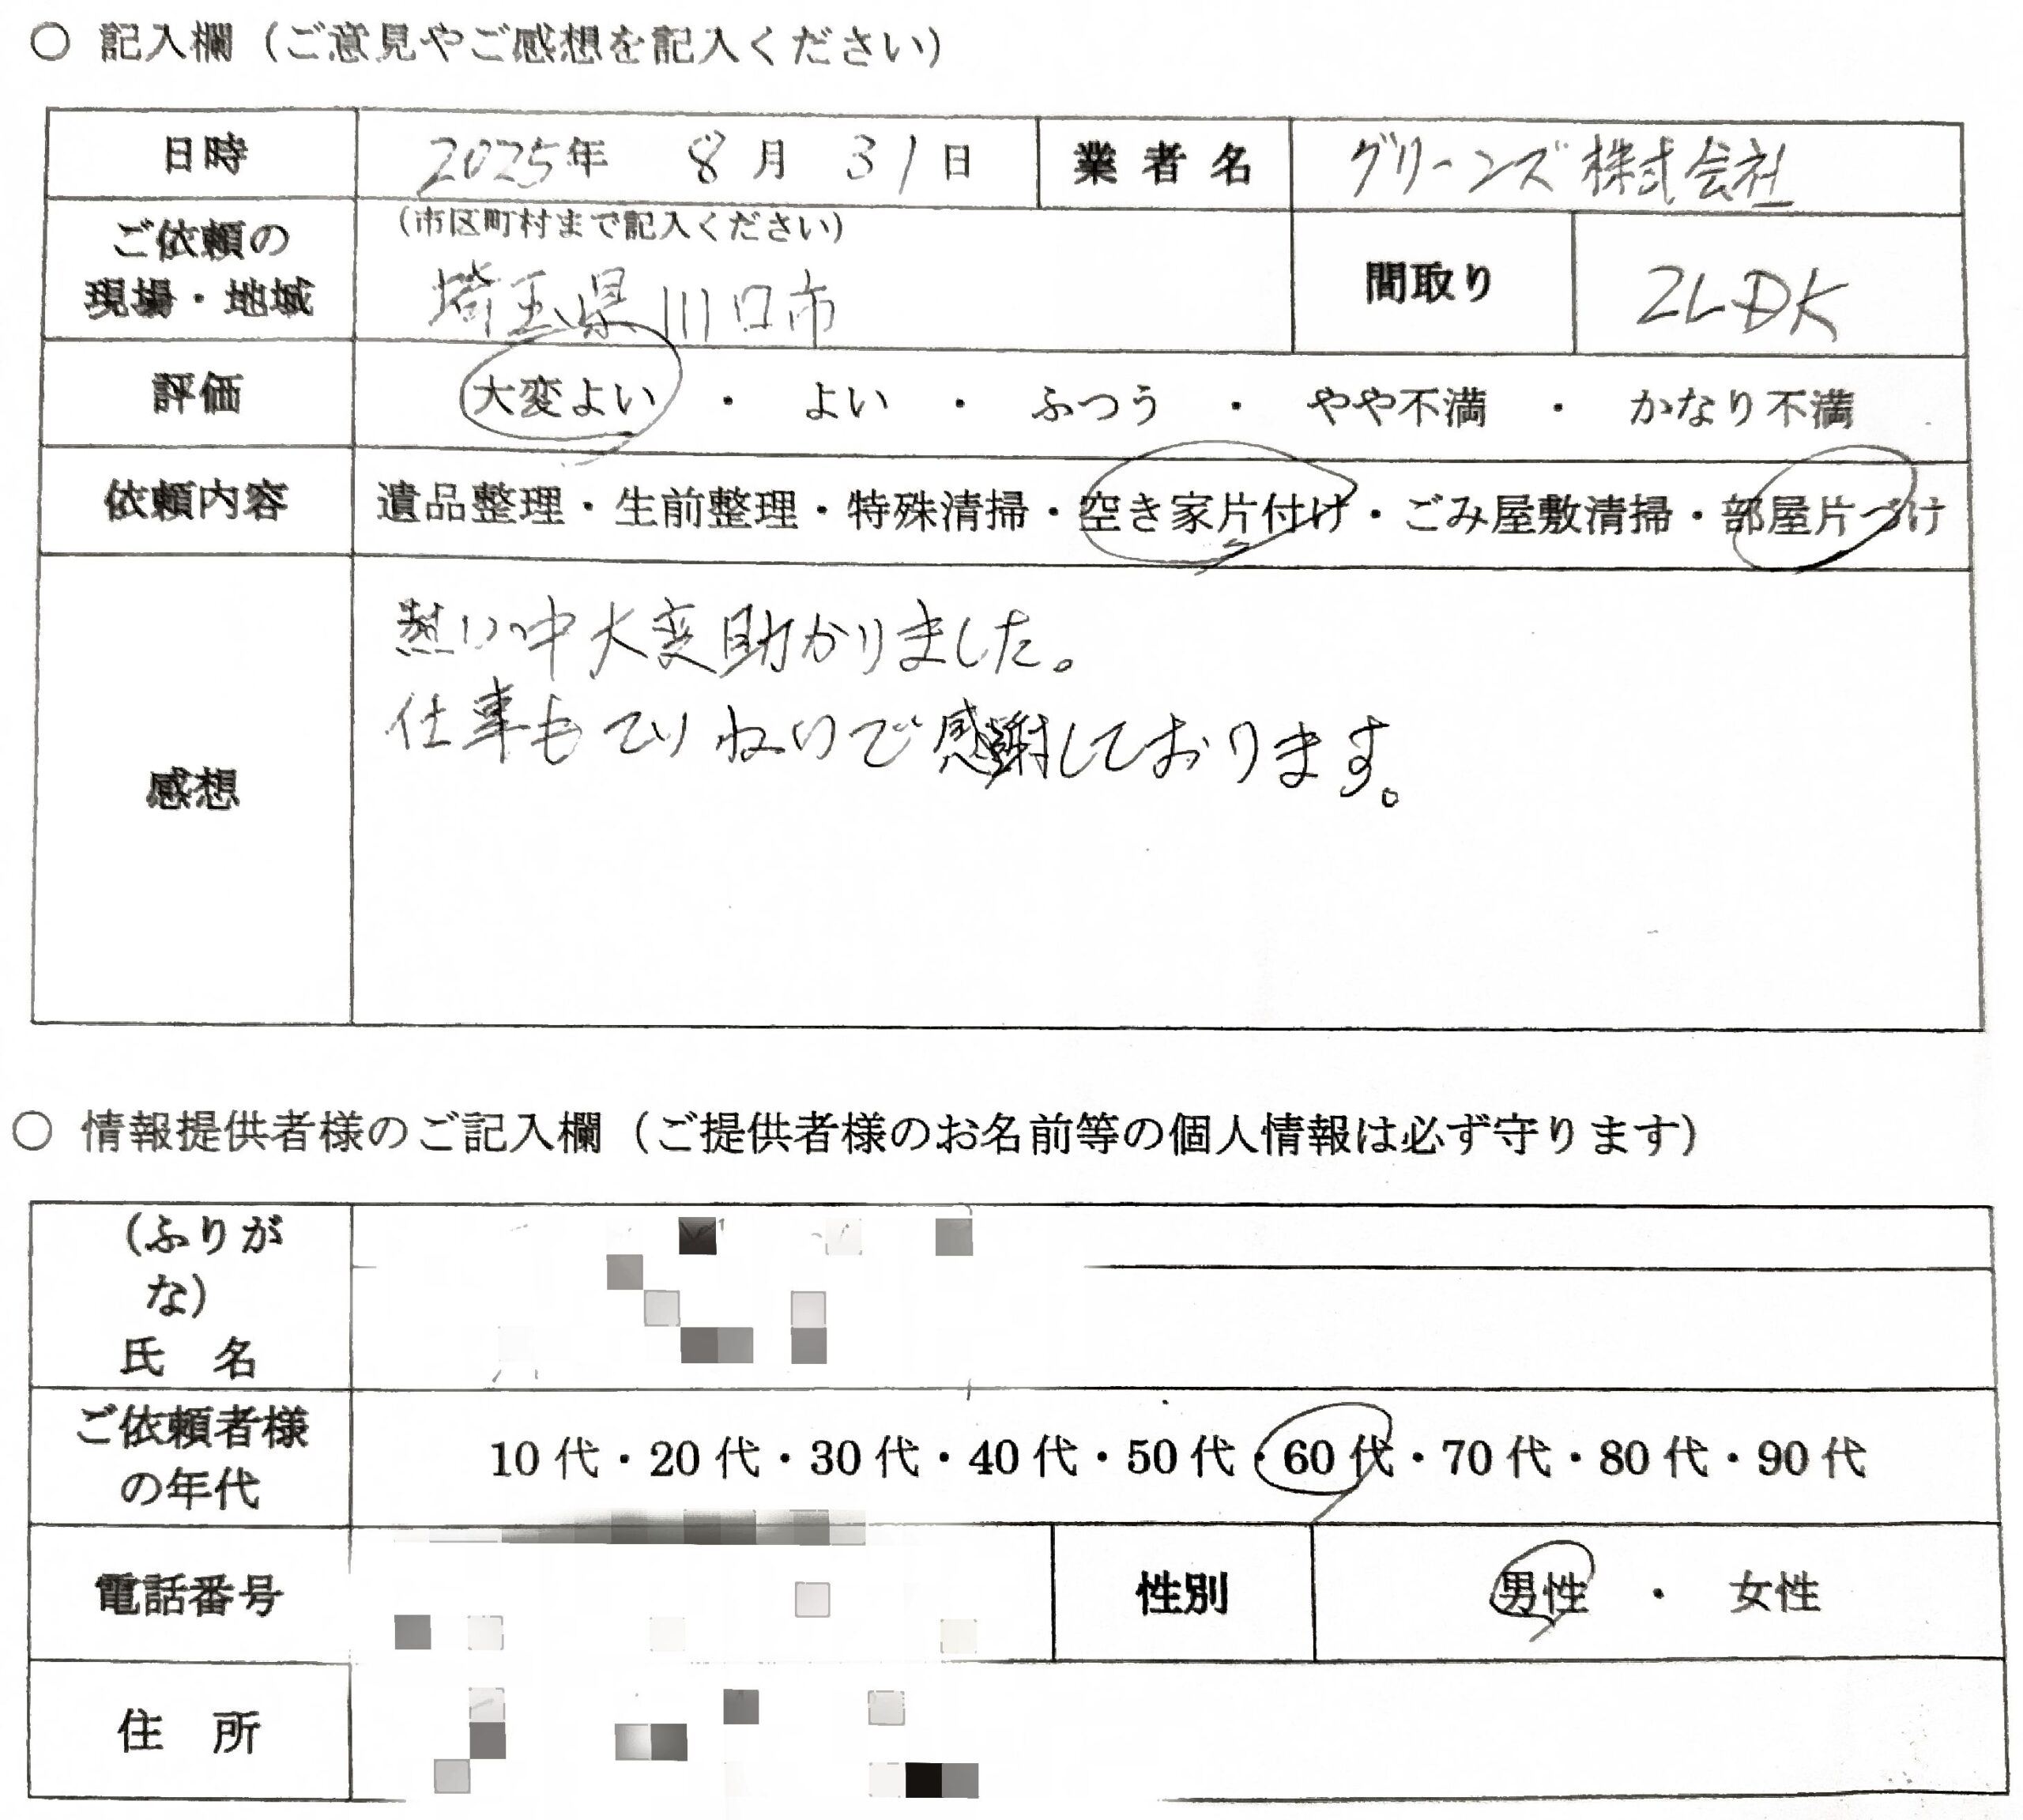 ○ 記入欄（ご意見やご感想を記入ください）
日時 2025年 8月 31日 業者名 グリーンズ株式会社
ご依頼の現場・地域 （市区町村まで記入ください） 埼玉県川口市 間取り 2LDK
評価 大変よい ・ よい ・ ふつう ・ やや不満 ・ かなり不満
依頼内容 遺品整理・生前整理・特殊清掃・空き家片付け・ごみ屋敷清掃・部屋片づけ
感想
熱い中大変助かりました。
仕事もていねいで感謝しております。
○ 情報提供者様のご記入欄（ご提供者様のお名前等の個人情報は必ず守ります）
（ふりがな）
氏 名
ご依頼者様の年代 10代・20代・30代・40代・50代・60代・70代・80代・90代
電話番号 性別 男性 ・ 女性
住 所